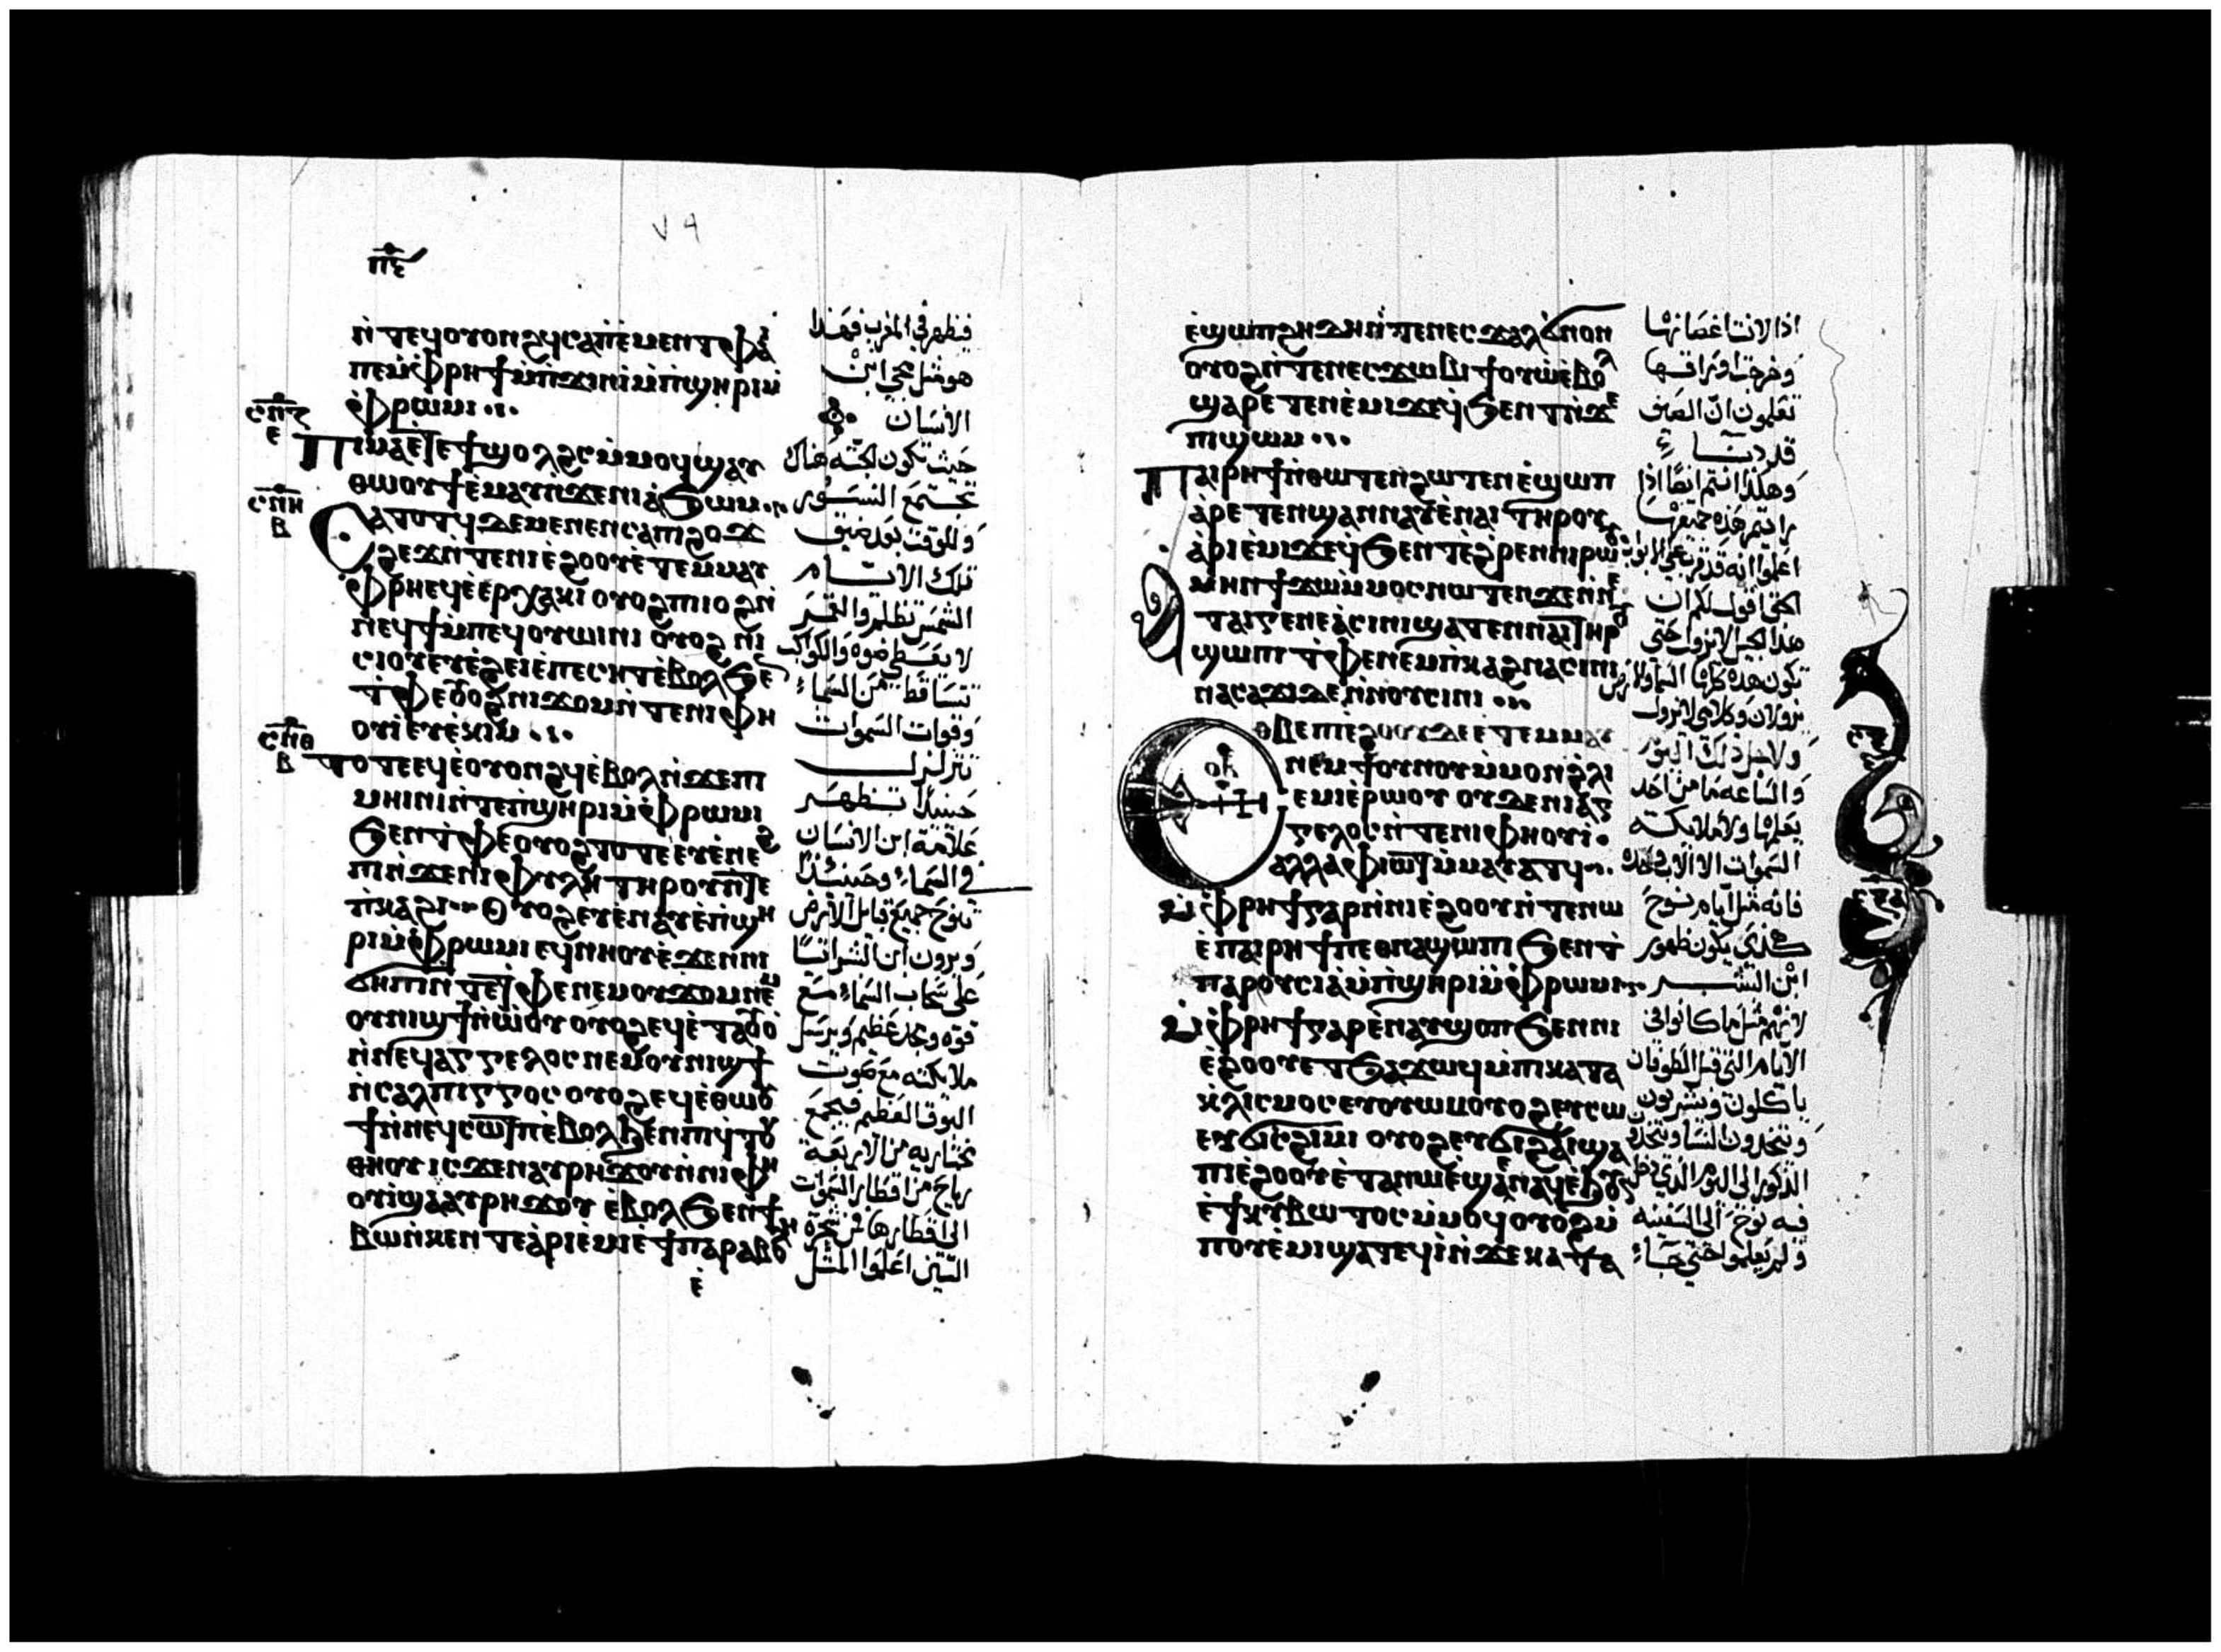 ⲡⲋ
٧٩
ⲛ̀ⲧⲉϥⲟⲩⲟⲛϩϥ ⲥⲁⲡⲉⲙⲉⲛⲧ ⲫⲁⲓ
ⲡⲉ ⲙ̀ⲫⲣⲏϯ ⲙ̀ⲡϫⲓⲛⲓ̀ ⲙ̀ⲡϣⲏⲣⲓ ⲙ̀
ⲫⲣⲱⲙⲓ
ⲥⲡⲍ
ⲉ
Ⲡⲓⲙⲁ ⲉⲧⲉ ϯϣⲟⲗϩⲥ ⲙ̀ⲙⲟϥ ϣⲁⲩ
ⲑⲱⲟⲩϯ ⲉ̀ⲙⲁⲩ ⲛ̀ϫⲉⲛⲓⲁ̀ϧⲱⲙ
ⲥⲡⲏ
ⲃ
Ⲥⲁⲧⲟⲧϥ ⲇⲉ ⲙⲉⲛⲉⲛⲥⲁ ⲡϩⲟϫ
ϩⲉϫ ⲛ̀ⲧⲉⲛⲓⲉ̀ϩⲟⲟⲩ ⲉ̀ⲧⲉⲙⲙⲁⲩ
ⲫⲣⲏ ⲉϥⲉ̀ⲉⲣⲭⲁⲕⲓ ⲟⲩⲟϩ ⲡⲓⲓⲟϩ ⲛ̀
ⲛⲉϥϯ ⲙ̀ⲡⲉϥⲟⲩⲱⲓⲛⲓ ⲟⲩⲟϩ ⲛⲓ
ⲥⲓⲟⲩ ⲉⲩⲉ̀ϩⲉⲓ ⲉ̀ⲡⲉⲥⲏⲧ ⲉ̀ⲃⲟⲗ ϧⲉⲛ
ⲧ̀ⲫⲉ ⲟⲩⲟϩ ⲛⲓϫⲟⲙ ⲛ̀ⲧⲉⲛⲓⲫⲏ
ⲟⲩⲓ̀ ⲉⲩⲉ̀ⲕⲓⲙ
ⲥⲡⲑ
ⲃ
Ⲧⲟⲧⲉ ⲉϥⲉ̀ⲟⲩⲟⲛϩϥ ⲉ̀ⲃⲟⲗ ⲛ̀ϫⲉⲡⲓ
ⲙⲏⲓⲛⲓ ⲛ̀ⲧⲉⲡ̀ϣⲏⲣⲓ ⲙ̀ⲫⲣⲱⲙⲓ
ϧⲉⲛ ⲧ̀ⲫⲉ ⲟⲩⲟϩ ⲧⲟⲧⲉ ⲉⲩⲉ̀ⲛⲉϩ
ⲡⲓ ⲛ̀ϫⲉⲛⲓⲫⲩⲗⲏ ⲧⲏⲣⲟⲩ ⲛ̀ⲧⲉ
ⲡ̀ⲕⲁϩⲓ Ⲟⲩⲟϩ ⲉⲩⲉ̀ⲛⲁⲩ ⲉ̀ⲡ̀ϣⲏ
ⲣⲓ ⲙ̀ⲫⲣⲱⲙⲓ ⲉϥⲛⲏⲟⲩ ⲉ̀ϫⲉⲛ ⲛⲓ
ϭⲏⲡⲓ ⲛ̀ⲧⲉ ⲧ̀ⲫⲉ ⲛⲉⲙ ⲟⲩϫⲟⲙ ⲛⲉⲙ
ⲟⲩⲛⲓϣϯ ⲛ̀ⲱ̀ⲟⲩ ⲟⲩⲟϩ ⲉϥⲉ̀ⲧⲁⲟⲩⲟ
ⲛ̀ⲛⲉϥⲁⲅⲅⲉⲗⲟⲥ ⲛⲉⲙ ⲟⲩⲛⲓϣϯ
ⲛ̀ⲥⲁⲗⲡⲓⲅⲅⲟⲥ ⲟⲩⲟϩ ⲉϥⲉ̀ⲑⲱⲟⲩ
ϯ ⲛ̀ⲛⲉϥⲥⲱⲧⲡ ⲉ̀ⲃⲟⲗ ϧⲉⲛ ⲡⲓϥⲧⲟⲩ
ⲑⲏⲟⲩ ⲓⲥϫⲉⲛ ⲁⲩⲣⲏϫⲟⲩ ⲛ̀ⲛⲓⲫⲏ
ⲟⲩⲓ̀ ϣⲁ ⲁⲩⲣⲏϫⲟⲩ ⲉ̀ⲃⲟⲗ ϧⲉⲛ ϯ
ⲃⲱ ⲛ̀ⲕⲉⲛⲧⲉ ⲁ̀ⲣⲓⲉ̀ⲙⲓ ⲉ̀ϯⲡⲁⲣⲁⲃⲟⲗⲏ
ⲉ̀
فيظهر في المغرب فهكذا
هو مثل مجي ابن
الانسان
حيث تكون الجثه هناك
تجتمع النسور
وللوقت بعد ضيق
تلك الايام
الشمس تظلم والقمر
لا يعطي ضوه والكواكب
تتساقط من السماء
وقوات السموات
تتزلزل
حينيذ تظهر
علامة ابن الانسان
في السماء وحينيذ
تنوح جميع قبايل الارض
ويرون ابن البشر اتيا
على سحاب السماء مع
قوه ومجد عظيم ويرسل
ملايكته مع صوت
البوق العظيم فيجمع
مختاريه من الاربعة
رياح من اقطار السموات
الى اقطارها من شجرة
التين اعلموا المثل
ⲉ̀ϣⲱⲡ ϩⲏⲇⲏ ⲛ̀ⲧⲉⲛⲉⲥϫⲁⲗ ϭⲛⲟⲛ
ⲟⲩⲟϩ ⲛ̀ⲧⲉⲛⲉⲥϫⲱⲃⲓ ϯⲟⲩⲱ ⲉ̀ⲃⲟⲗ
ϣⲁⲣⲉⲧⲉⲛⲉ̀ⲙⲓ ϫⲉ ϥ̀ϧⲉⲛⲧ ⲛ̀ϫⲉ
ⲡⲓϣⲱⲙ
Ⲡⲁⲓⲣⲏϯ ⲛ̀ⲑⲱⲧⲉⲛ ϩⲱⲧⲉⲛ ⲉ̀ϣⲱⲡ
ⲁ̀ⲣⲉⲧⲉⲛϣⲁⲛⲛⲁⲩ ⲉ̀ⲛⲁⲓ ⲧⲏⲣⲟⲩ
ⲁ̀ⲣⲓⲉ̀ⲙⲓ ϫⲉ ϥ̀ϧⲉⲛⲧ ⲉ̀ϩ̀ⲣⲉⲛ ⲛⲓⲣⲱⲟⲩ
Ⲁⲙⲏⲛ ϯϫⲱ ⲙ̀ⲙⲟⲥ ⲛⲱⲧⲉⲛ ϫⲉ ⲛ̀ⲛⲉ
ⲧⲁⲓⲅⲉⲛⲉⲁ̀ ⲥⲓⲛⲓ ϣⲁⲧⲉ ⲛⲁⲓ ⲧⲏⲣⲟⲩ
ϣⲱⲡⲓ ⲧ̀ⲫⲉ ⲛⲉⲙ ⲡ̀ⲕⲁϩⲓ ⲛⲁⲥⲓⲛⲓ
ⲛⲁⲥⲁϫⲓ ⲇⲉ ⲛ̀ⲛⲟⲩⲥⲓⲛⲓ
Ⲉⲑⲃⲉ ⲡⲓⲉ̀ϩⲟⲟⲩ ⲇⲉ ⲉ̀ⲧⲉⲙⲙⲁⲩ
ⲛⲉⲙ ϯⲟⲩⲛⲟⲩ ⲙ̀ⲙⲟⲛ ϩ̀ⲗⲓ
ⲉⲙⲓ ⲉ̀ⲣⲱⲟⲩ ⲟⲩⲇⲉ ⲛⲓⲁⲅ
ⲅⲉⲗⲟⲥ ⲛ̀ⲧⲉⲛⲓⲫⲏⲟⲩⲓ̀
ⲁⲗⲗⲁ ⲫⲓⲱⲧ ⲙ̀ⲙⲁⲩⲁⲧϥ
Ⲙ̀ⲫⲣⲏϯ ⲅⲁⲣ ⲛ̀ⲛⲓⲉ̀ϩⲟⲟⲩ ⲛ̀ⲧⲉⲛⲱ
ⲉ̀ ⲡⲁⲓⲣⲏϯ ⲡⲉⲑⲛⲁϣⲱⲡⲓ ϧⲉⲛ ϯ
ⲡⲁⲣⲟⲩⲥⲓⲁ ⲙ̀ⲡ̀ϣⲏⲣⲓ ⲙ̀ⲫⲣⲱⲙⲓ
Ⲙ̀ⲫⲣⲏϯ ⲅⲁⲣ ⲉ̀ⲛⲁⲩϣⲟⲡ ϧⲉⲛ ⲛⲓ
ⲉ̀ϩⲟⲟⲩ ⲉⲧϧⲁϫⲱϥ ⲙ̀ⲡⲓⲕⲁⲧⲁ
ⲕ̀ⲗⲓⲥⲙⲟⲥ ⲉⲩⲟⲩⲱⲙ ⲟⲩⲟϩ ⲉⲩⲥⲱ
ⲉⲩϭⲓⲥϩⲓⲙⲓ ⲟⲩⲟϩ ⲉⲩϭⲓϩⲁⲓ ϣⲁ
ⲡⲓⲉ̀ϩⲟⲟⲩ ⲉ̀ⲧⲁ ⲛⲱⲉ̀ ϣⲉⲛⲁϥ ⲉ̀ϧⲟⲩⲛ
ⲉ̀ϯⲕⲩⲃⲱⲧⲟⲥ ⲙ̀ⲙⲟϥ ⲟⲩⲟϩ ⲙ̀
ⲡⲟⲩⲉ̀ⲙⲓ ϣⲁⲧⲉϥⲓ̀ ⲛ̀ϫⲉ ⲕⲁⲧⲁ
اذا لانت اغصانها
وخرجت اوراقها
تعلمون ان الصيف
قد دنا
وهكذا انتم ايضا اذا
رايتم هذه جميعها
اعلموا انه قد قرب على الابواب
الحق اقول لكم ان
هذا الجيل لا يزول حتى
تكون هذه كلها السما والارض
يزولان وكلامي لا يزول
ولاجل ذلك اليوم
والساعه ما من احد
يعلمها ولا ملايكة
السموات الا الاب وحده
فانه مثل ايام نوح
كذلك يكون ظهور
ابن البشر
لانهم مثل ما كانوا في
الايام التي قبل الطوفان
ياكلون ويشربون
ويتخذون النسا ويتخذن
الذكور الى اليوم الذي دخل
فيه نوح الى السفينه
ولم يعلموا حتى جاء